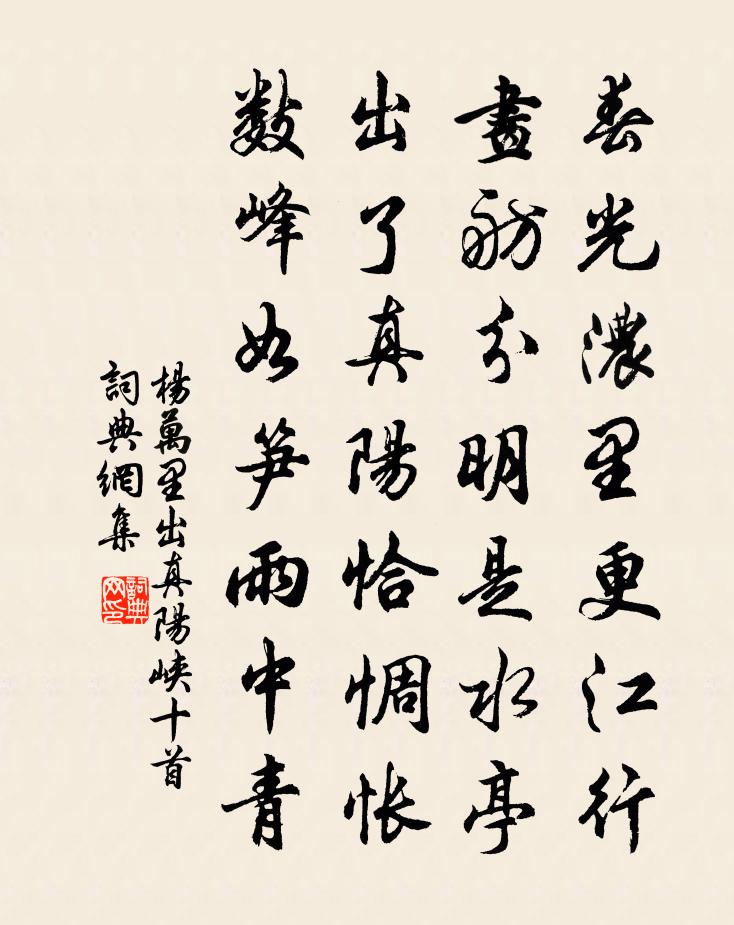 春光濃里更江行
畫舫分明是水亭
出了真陽恰惆怅
数峰如笋雨中青
楊萬里出真陽峡十首
詞典網集
詞典网印